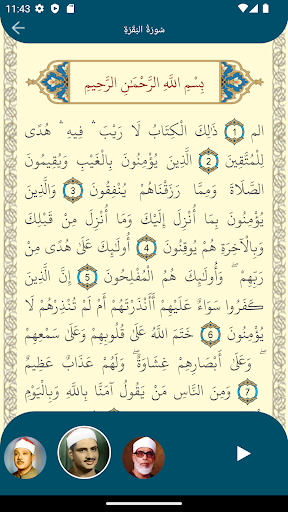 11:43
سُورَةُ البَقَرَةِ
بِسْمِ اللَّهِ الرَّحْمَٰنِ الرَّحِيمِ
الم ١ ذَٰلِكَ الْكِتَابُ لَا رَيْبَ ۛ فِيهِ ۛ هُدًى
لِلْمُتَّقِينَ ٢ الَّذِينَ يُؤْمِنُونَ بِالْغَيْبِ وَيُقِيمُونَ
الصَّلَاةَ وَمِمَّا رَزَقْنَاهُمْ يُنْفِقُونَ ٣ وَالَّذِينَ
يُؤْمِنُونَ بِمَا أُنْزِلَ إِلَيْكَ وَمَا أُنْزِلَ مِنْ قَبْلِكَ
وَبِالْآخِرَةِ هُمْ يُوقِنُونَ ٤ أُولَٰئِكَ عَلَىٰ هُدًى مِنْ
رَبِّهِمْ ۖ وَأُولَٰئِكَ هُمُ الْمُفْلِحُونَ ٥ إِنَّ الَّذِينَ
كَفَرُوا سَوَاءٌ عَلَيْهِمْ أَأَنْذَرْتَهُمْ أَمْ لَمْ تُنْذِرْهُمْ لَا
يُؤْمِنُونَ ٦ خَتَمَ اللَّهُ عَلَىٰ قُلُوبِهِمْ وَعَلَىٰ سَمْعِهِمْ
ۖ وَعَلَىٰ أَبْصَارِهِمْ غِشَاوَةٌ ۖ وَلَهُمْ عَذَابٌ عَظِيمٌ
٧ وَمِنَ النَّاسِ مَنْ يَقُولُ آمَنَّا بِاللَّهِ وَبِالْيَوْمِ